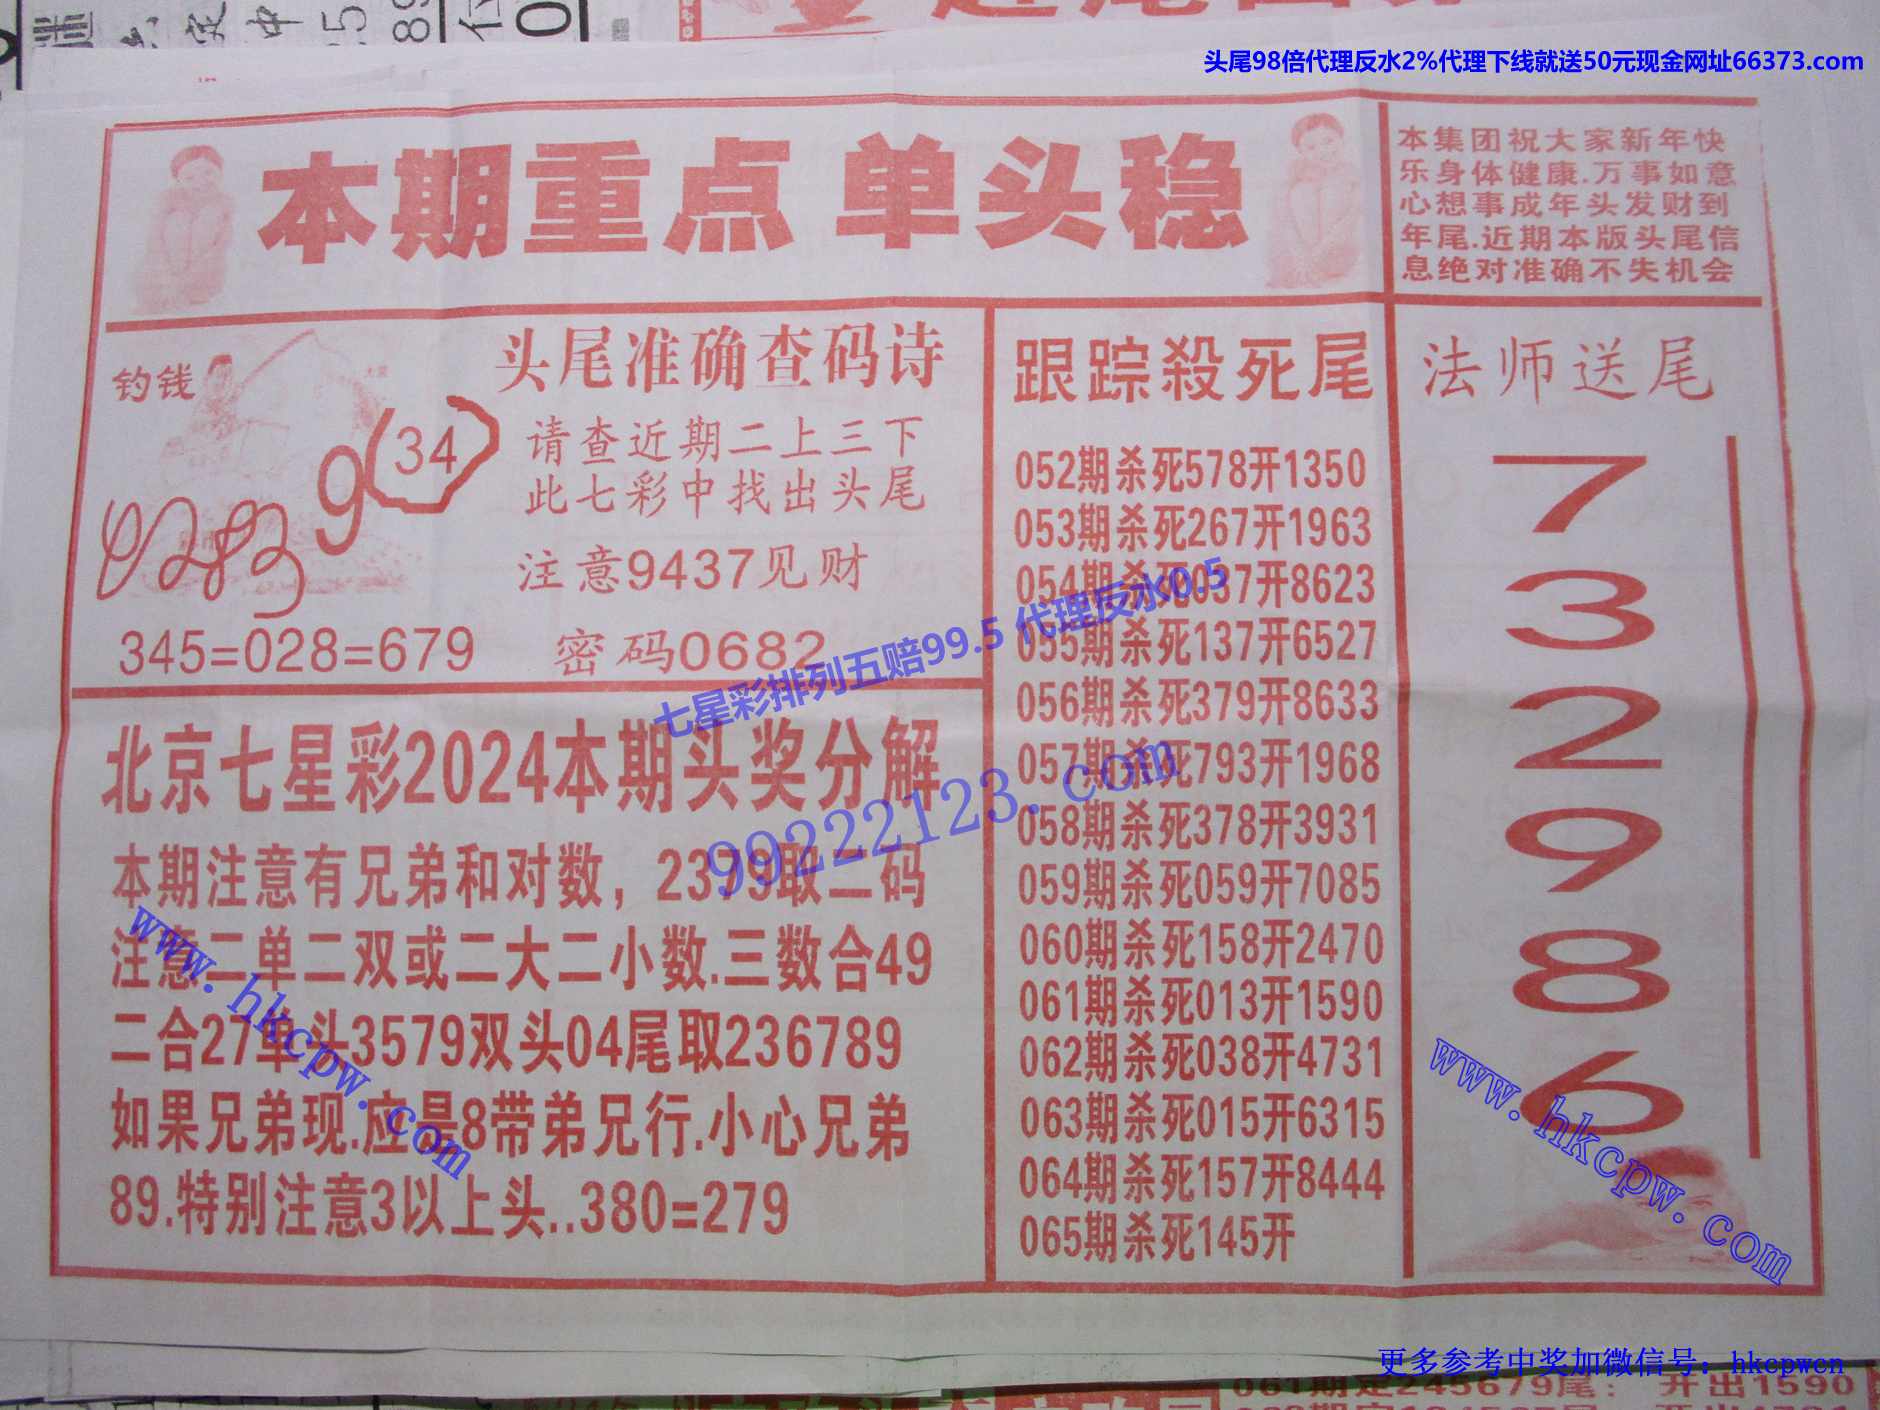 头尾98倍代理反水2%代理下线就送50元现金网址66373.com
本期重点 单头稳
本集团祝大家新年快
乐身体健康.万事如意
心想事成年头发财到
年尾.近期本版头尾信
息绝对准确不失机会
钓钱
9(34)
头尾准确查码诗
请查近期二上三下
此七彩中找出头尾
注意9437见财
345=028=679
密码0682
跟踪殺死尾
052期杀死578开1350
053期杀死267开1963
054期杀死037开8623
055期杀死137开6527
056期杀死379开8633
057期杀死793开1968
058期杀死378开3931
059期杀死059开7085
060期杀死158开2470
061期杀死013开1590
062期杀死038开4731
063期杀死015开6315
064期杀死157开8444
065期杀死145开
法师送尾
7
3
2
9
8
6
北京七星彩2024本期头奖分解
本期注意有兄弟和对数，2379取二码
注意二单二双或二大二小数.三数合49
二合27单头3579双头04尾取236789
如果兄弟现.应是8带弟兄行.小心兄弟
89.特别注意3以上头..380=279
七星彩排列五赔99.5 代理反水0.5
99222123.com
www.hkcpw.com
www.hkcpw.com
更多参考中奖加微信号：hkcpwcn
061期定245679尾： 开出1590